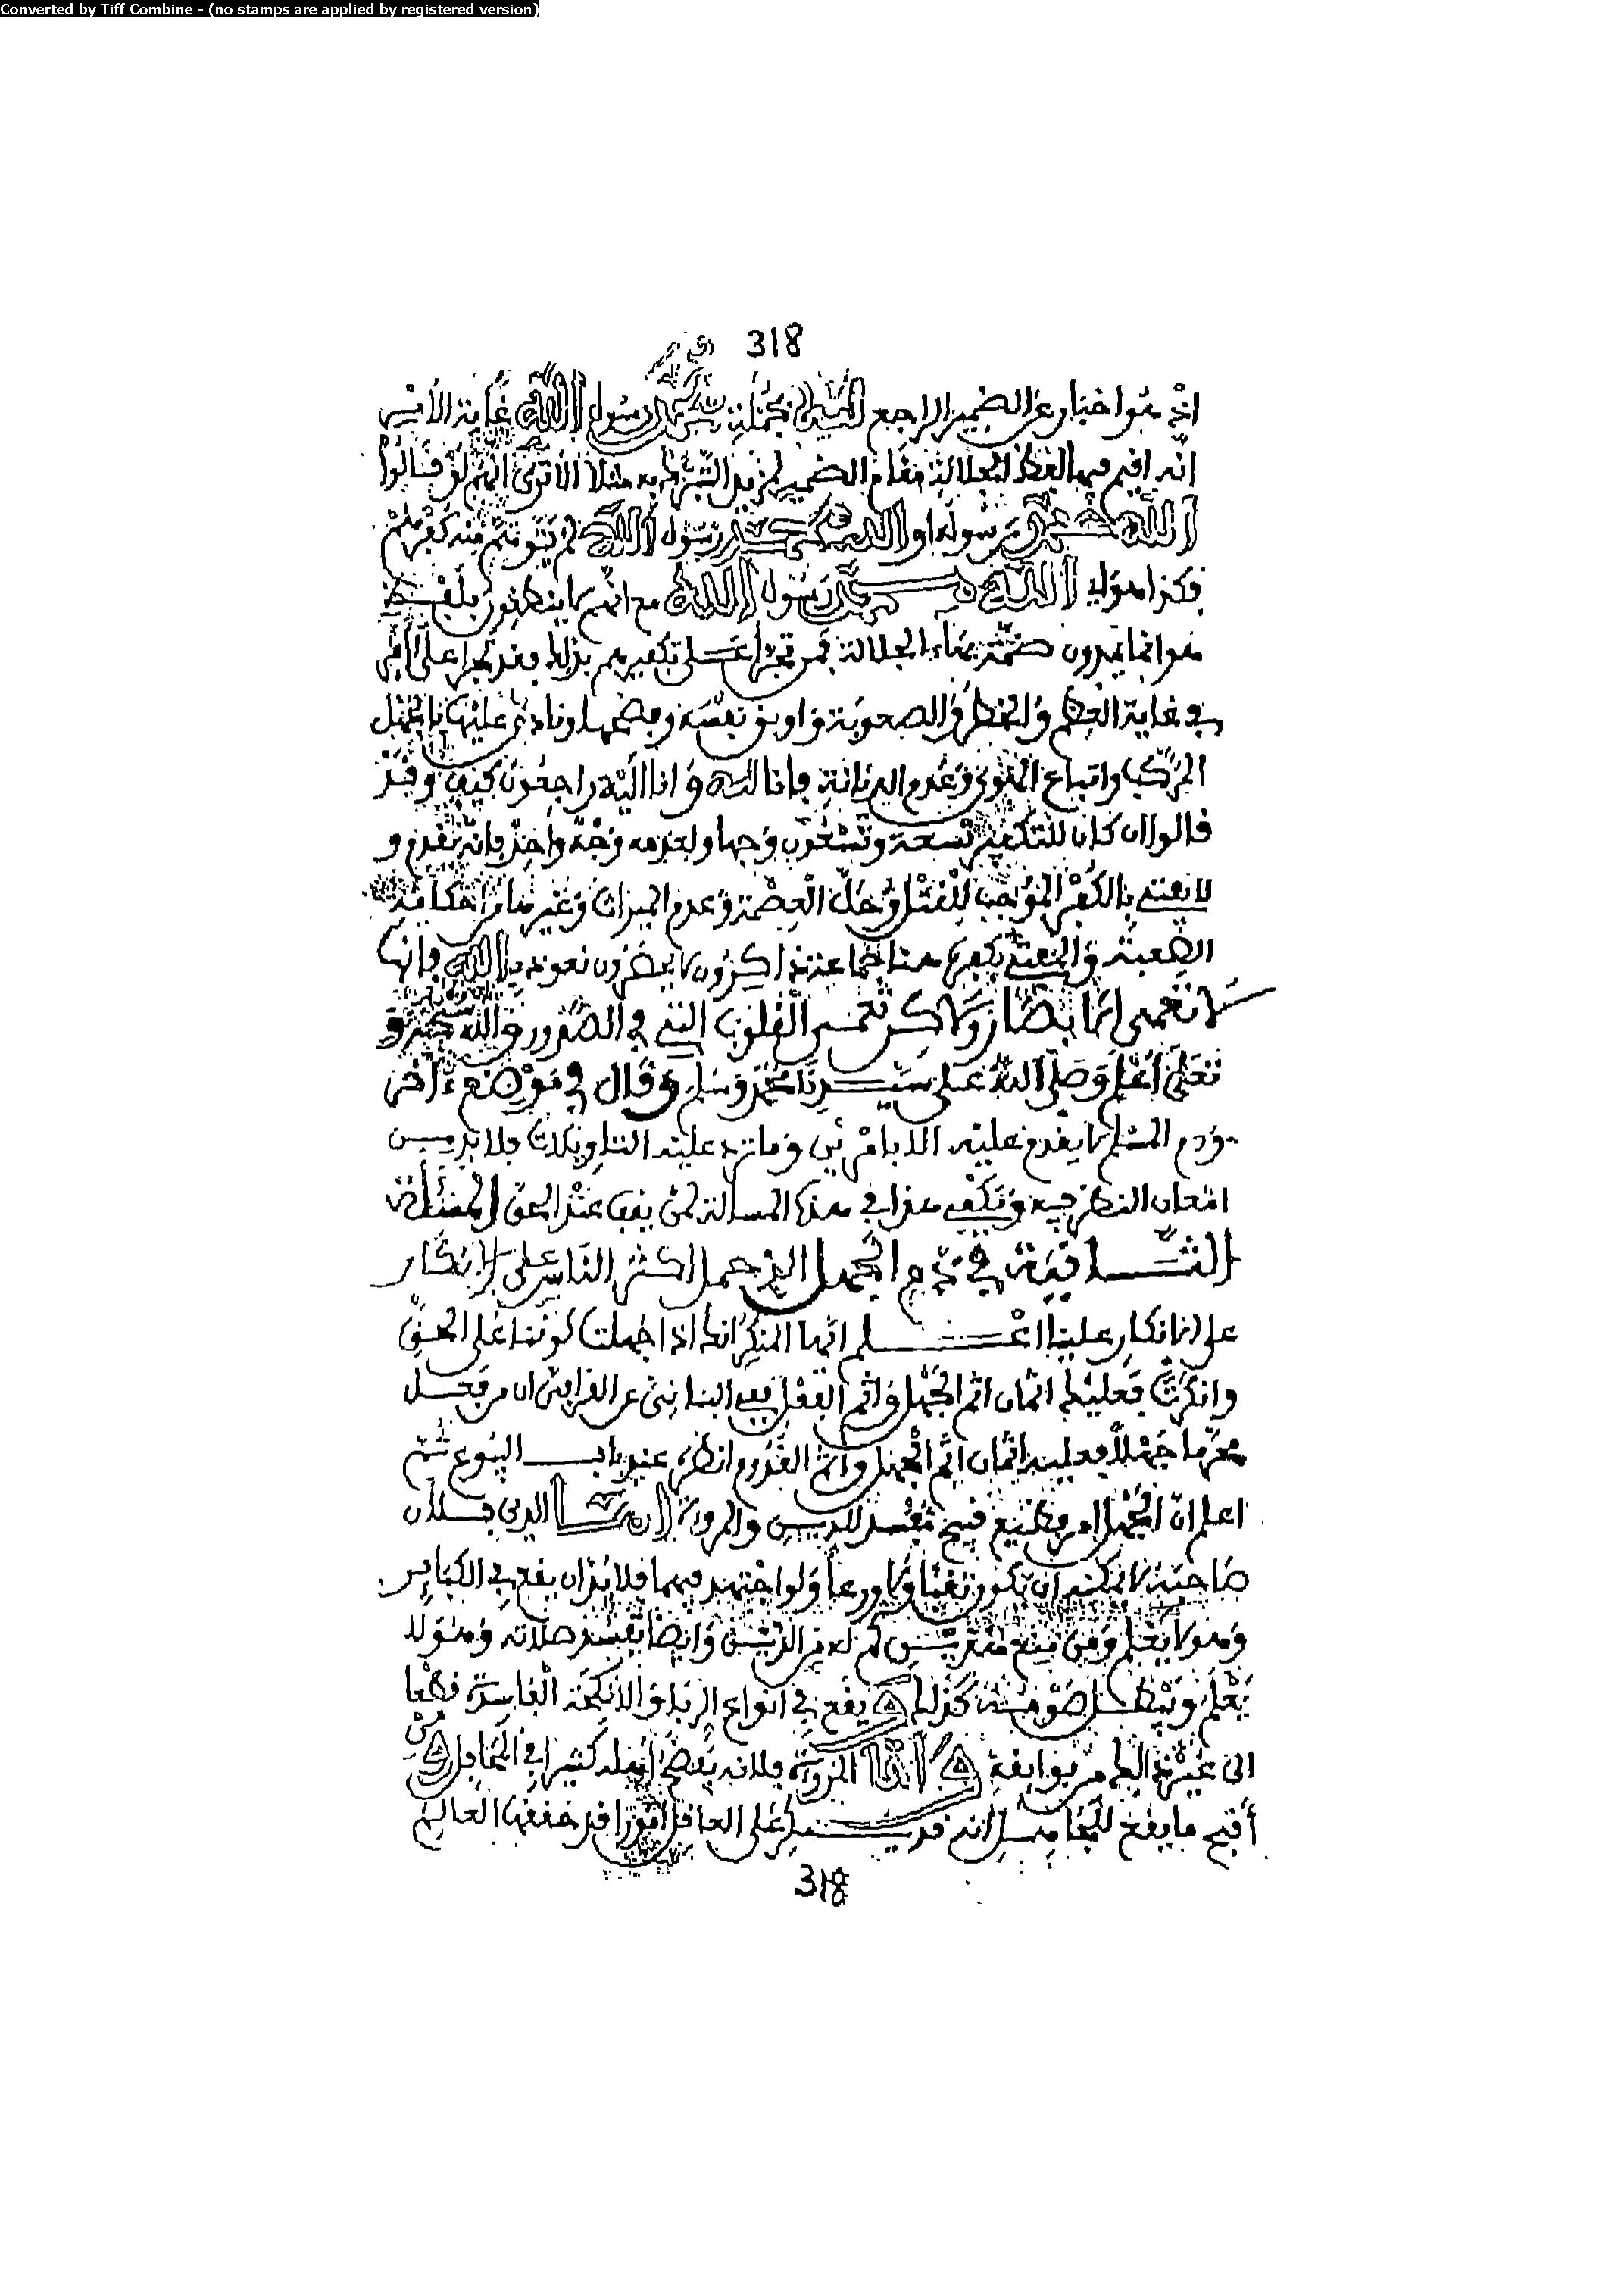 Converted by Tiff Combine - (no stamps are applied by registered version)
318
اذ هو اخبار عن الضمير الراجع لله بجملة محمد رسول الله غاية الامر
انه اقيم فيها لفظ الجلالة مقام الضمير لمزيد التبرك به مثلا الا ترى انهم لو قالوا
الله محمد رسوله او الله محمد رسول الله لم يتوهم منه كفرهم
فكذا هو لا الله محمد رسول الله مع انهم لا ينطقون بلفظ
هو انما يمدون ضمة هاء الجلالة فمن تجرا على تكفيرهم بذلك فقد تجرا على امر
في غاية العظم والخطر والصعوبة واوبق نفسه وفضحها ونادى عليها بالجهل
المركب واتباع الهوى وعدم الديانة فانا لله وانا اليه راجعون كيف وقد
قالوا ان كان للتكفير تسعة وتسعون وجها ولعدمه وجه واحد فانه يقدم و
لا يفتى بالكفر الموجب للقتل وحل العصمة وعدم الميراث وغيرها من احكامه
الصعبة والمفتى بكفر هنا نعوذ بالله فانها
لا تعمى الابصار ولاكن تعمى القلوب التي في الصدور والله
تعلى اعلم وصلى الله على سيدنا محمد وسلم وقال في موضع ءاخر
ودم المسلم لا يقدم عليه الا بامر بين وما ترد عليه التاويلات فلا بد من
امعان النظر فيه ويكفي هذا في هذه المسالة لمن يقف عند الحق المسئلة
الثانية في ذم الجهل الذي حمل اكثر الناس على الانكار
على الانكار علينا اعلم ايها المنكر انك اذا جهلت كوننا على الحق
وانكرت فعليك اثمان اثم الجهل واثم الفعل ففي البناني عن القرافي ان من فعل
محرما جهلا فعليه اثمان اثم الجهل واثم القدوم انظره عند باب البيوع ثم
اعلم ان الجهل امر فظيع قبيح مفسد للدين والمروة اما الدين فلان
صاحبه لا يمكنه ان يكون تقيا ولا ورعا ولو اجتهد فيهما فلا بد ان يقع في الكبائر
وهو لا يعلم ومن منع لم له من الدين وايضا تفسد صلاته وهو لا
يعلم ويبطل صومه كذلك ويقع في انواع الربا والانكحة الفاسدة قطعا
الى غير ذلك من بوايقه واما المروة فلانه يفضح اهله كثيرا في المحافل ومن
أقبح ما يقع للجاهل انه قد ينكر على العاقل امورا قد حققها العالم
318